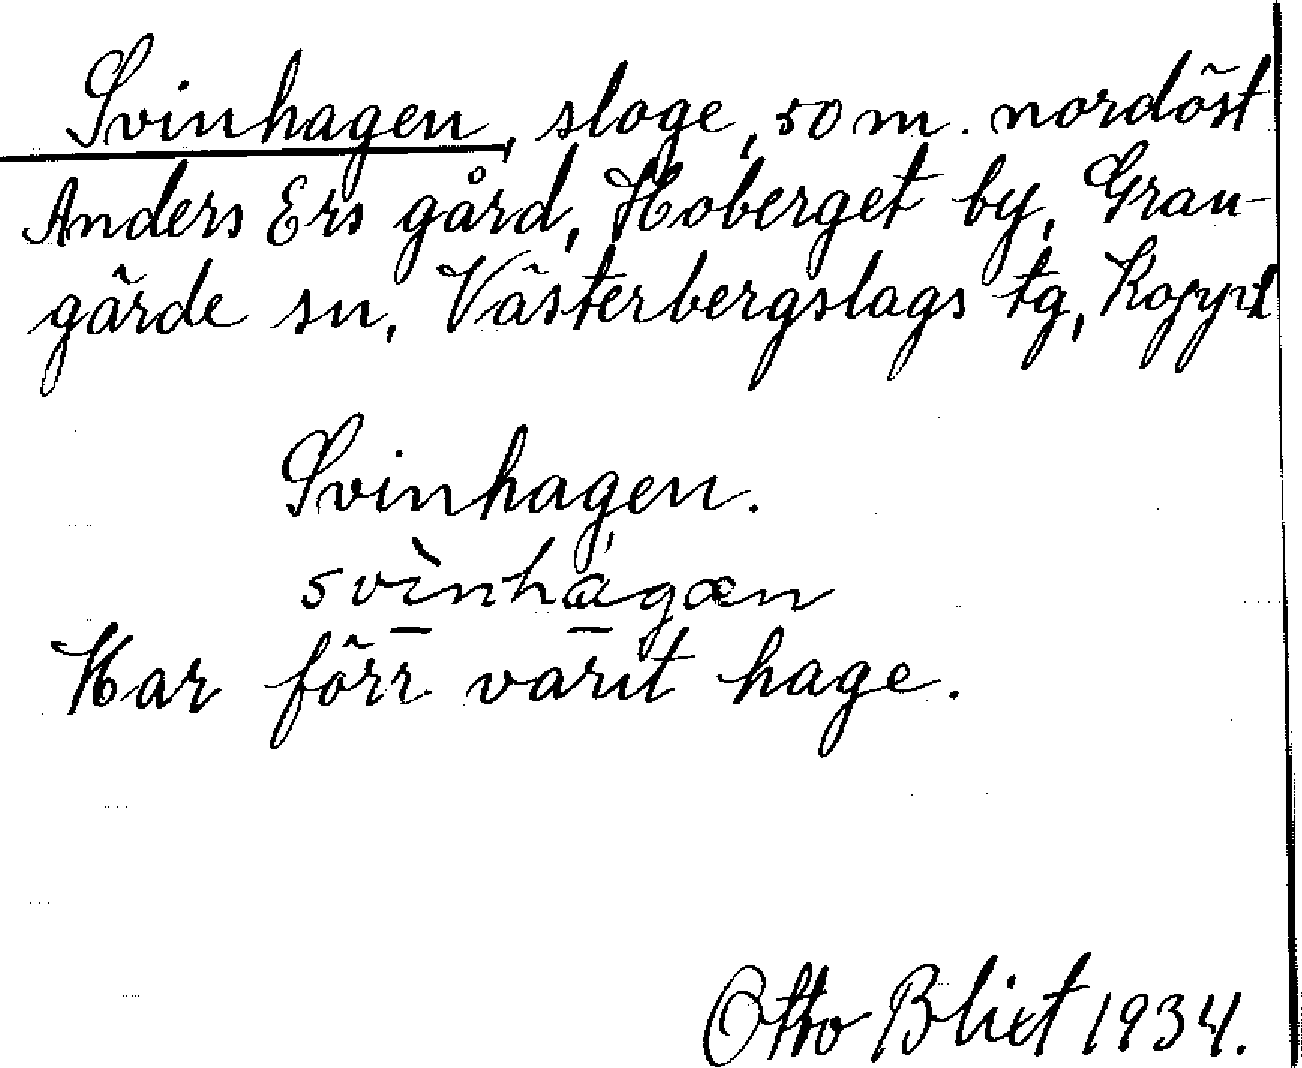 Svinhagen, sloge, 50 m. nordöst
Anders Ers gård, Hoberget by, Gran-
gärde sn, Västerbergslags tg, Kopp.l
Svinhagen.
svìnhàgæn
Har förr varit hage.
Otto Blixt 1934.